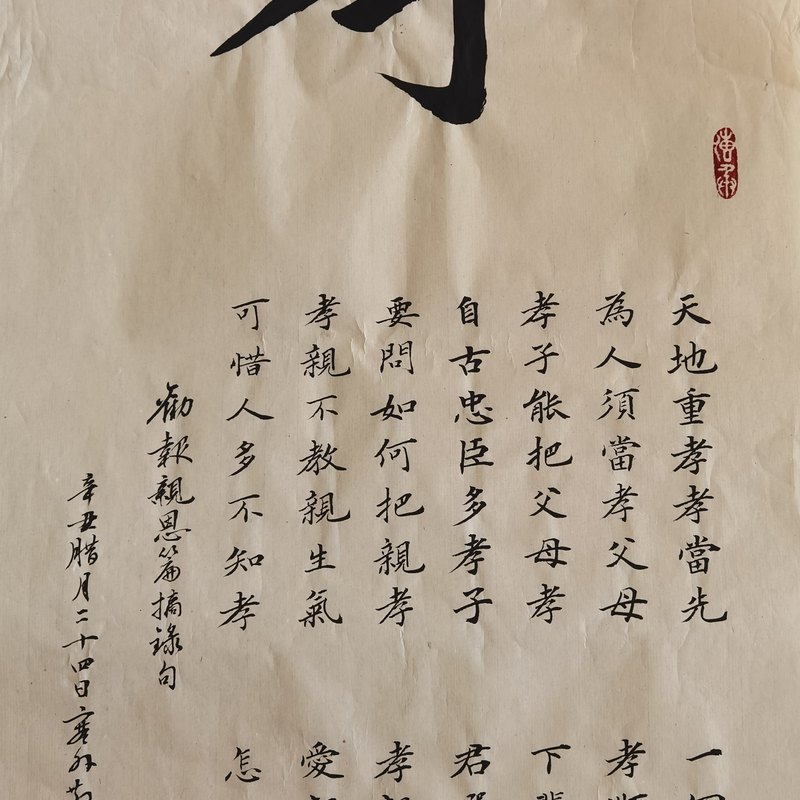 天地重孝孝當先
一個
為人須當孝父母
孝順
孝子能把父母孝
下輩
自古忠臣多孝子
君選
要問如何把親孝
孝親
孝親不教親生氣
愛親
可惜人多不知孝
怎
勸報親恩篇摘錄句
辛丑腊月二十四日